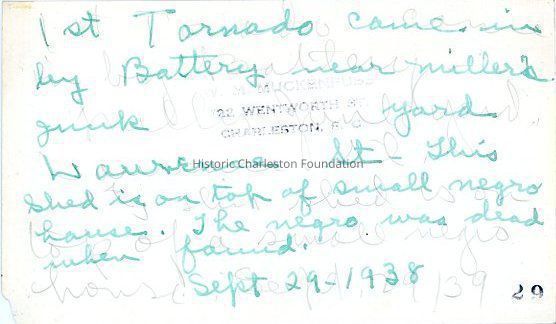 1st Tornado came in
by Battery near miller's
W. M. MUCKENFUSS
22 WENTWORTH ST.
junk yard
CHARLESTON, S. C.
Lawrence St - This
Historic Charleston Foundation
Shed is on top of small negro
house. The negro was dead
when found.
Sept 29-1938
29